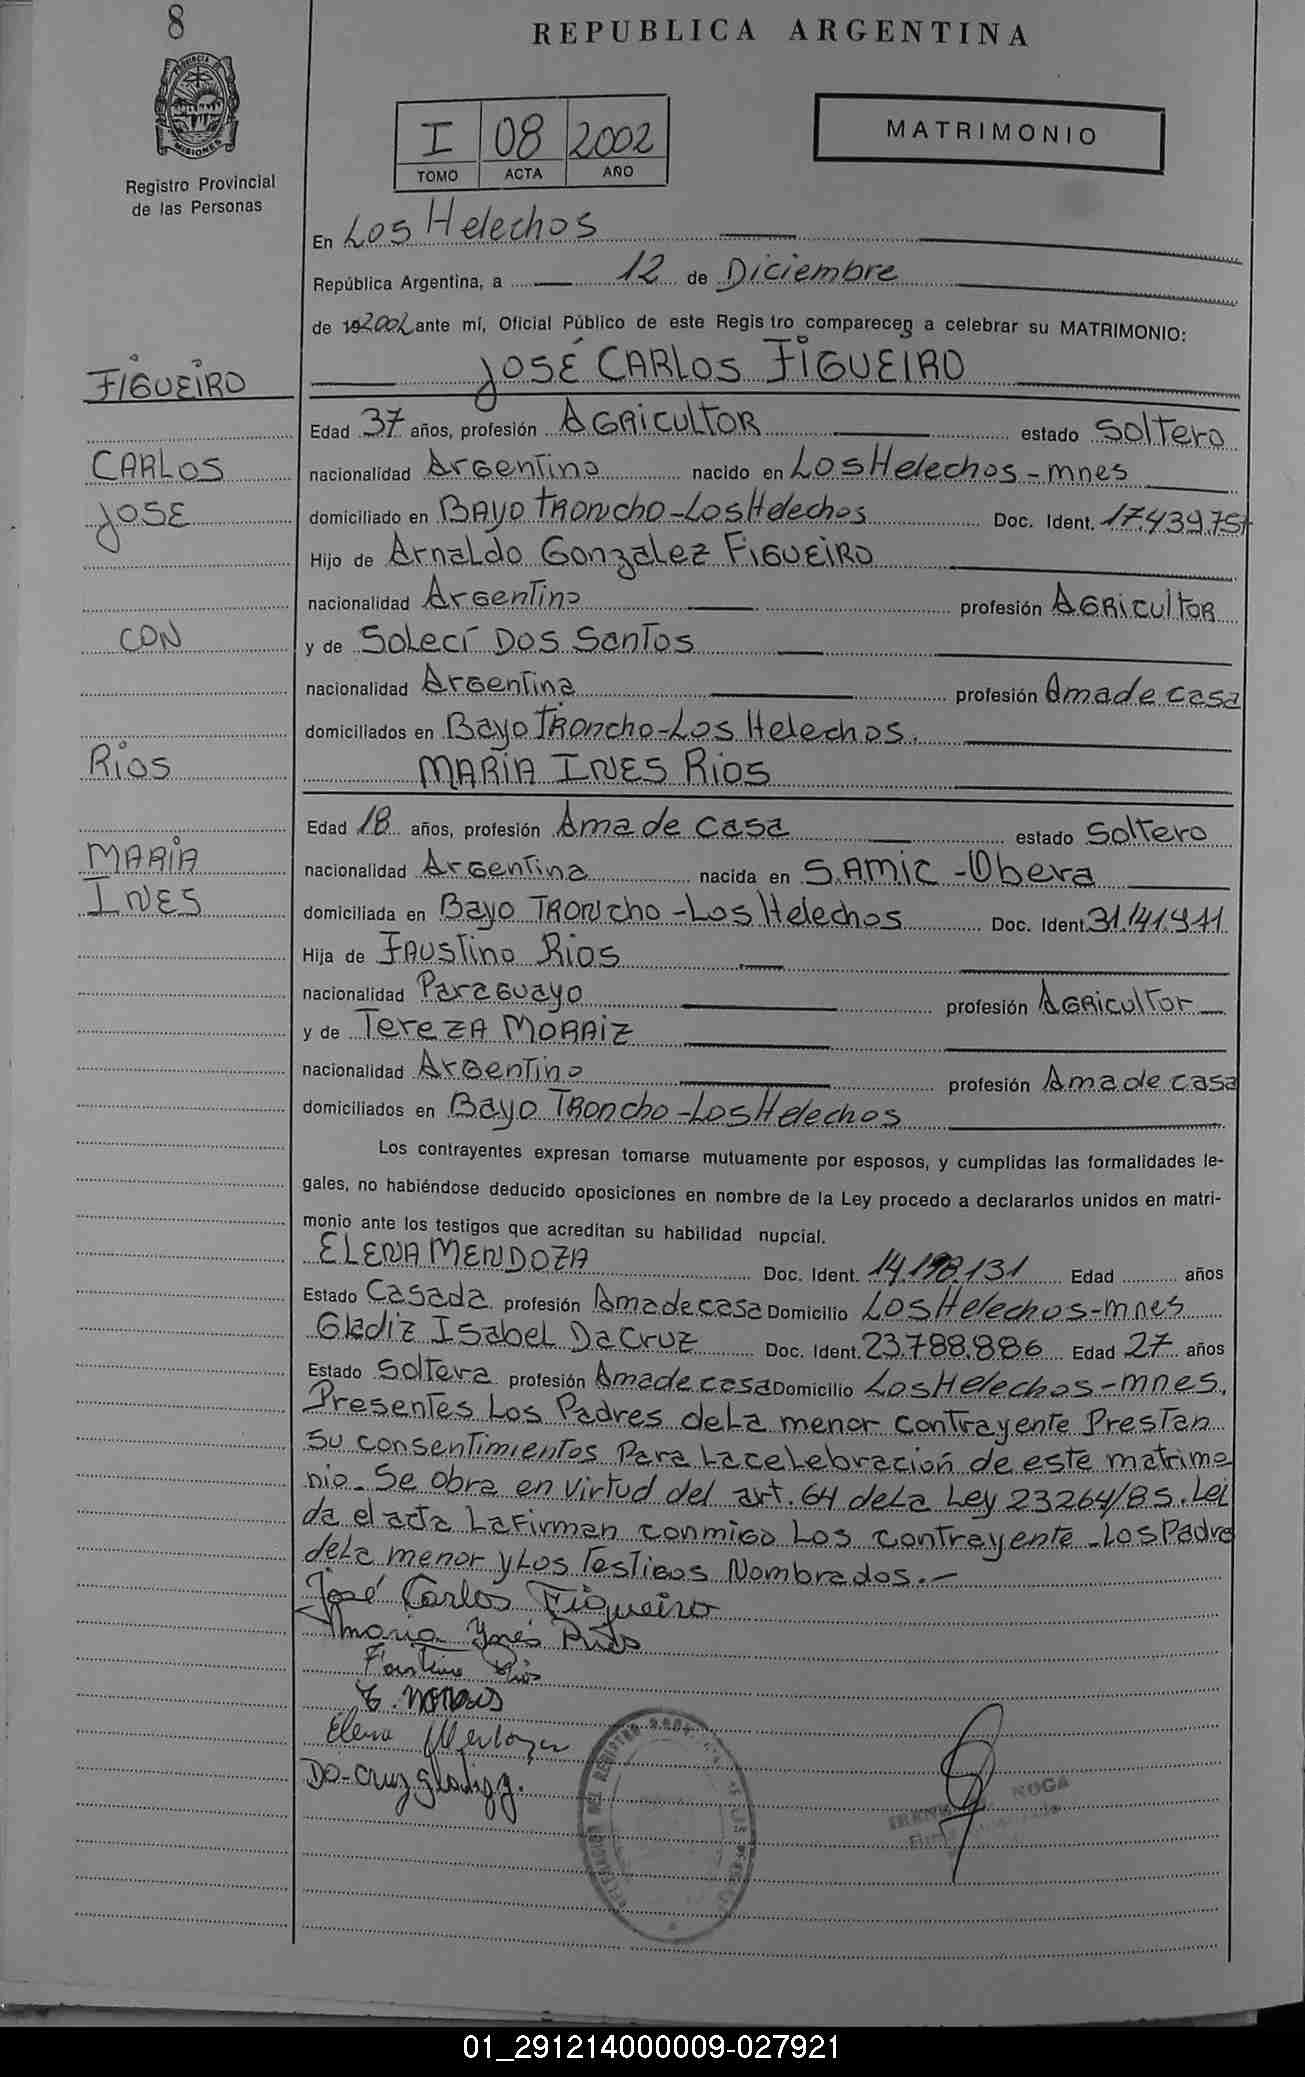 8
REPUBLICA ARGENTINA
PROVINCIA DE MISIONES
Registro Provincial
de las Personas
I 08 2002
TOMO ACTA AÑO
MATRIMONIO
En Los Helechos
República Argentina, a 12 de Diciembre
de 192002 ante mí, Oficial Público de este Registro comparecen a celebrar su MATRIMONIO:
FIGUEIRO
JOSÉ CARLOS FIGUEIRO
Edad 37 años, profesión AGRICULTOR estado SOLTERO
CARLOS
nacionalidad Argentino nacido en Los Helechos - mnes
JOSE
domiciliado en BAYO TRONCHO - Los Helechos Doc. Ident. 17.439.757
Hijo de Arnaldo Gonzalez FIGUEIRO
nacionalidad Argentino profesión AGRICULTOR
CON
y de Solecí Dos Santos
nacionalidad Argentina profesión Ama de casa
domiciliados en Bayo Troncho - Los Helechos.
RIOS
MARIA INES RIOS
Edad 18 años, profesión Ama de casa estado Soltero
MARIA
nacionalidad Argentina nacida en S.AMIC - Obera
INES
domiciliada en Bayo Troncho - Los Helechos Doc. Ident. 31.141.941
Hija de Faustino Rios
nacionalidad Paraguayo profesión AGRicultor
y de Tereza MORAIZ
nacionalidad Argentino profesión Ama de casa
domiciliados en Bayo Troncho - Los Helechos
Los contrayentes expresan tomarse mutuamente por esposos, y cumplidas las formalidades le-
gales, no habiéndose deducido oposiciones en nombre de la Ley procedo a declararlos unidos en matri-
monio ante los testigos que acreditan su habilidad nupcial.
ELENA MENDOZA Doc. Ident. 14.198.131 Edad años
Estado Casada profesión Ama de casa Domicilio Los Helechos - mnes
Gladiz Isabel Da Cruz Doc. Ident. 23.788.886 Edad 27 años
Estado Soltera profesión Ama de casa Domicilio Los Helechos - mnes.
Presentes Los Padres de La menor contrayente Prestan
su consentimientos Para La celebración de este matrimo
nio. Se obra en virtud del art. 64 de La Ley 23264/85. Lei
da el acta La Firman conmigo Los contrayente - Los Padre
de La menor y Los Testigos Nombrados.-
José Carlos Figueiro
Maria Ynés Rios
Faustino Rios
T. Morais
Elena Mendoza
Da-Cruz Gladiz I.
NOGA
01_291214000009-027921